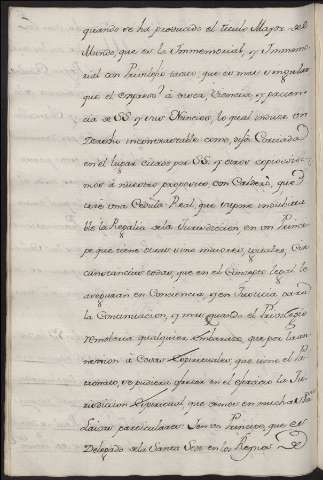 quando se ha producido el titulo Mayor del
Mundo, que es la Inmemorial, y Inmemo-
rial con Privilegio tacito, que es mas singular
que el expreso à ciencia, y pacien-
cia de SS y sus Nuncios, lo qual induce un
Derecho incontrastable como, dijo
en el lugar citado por SS. y otros
à nuestro proposito con
cita una Cedula Real, que supone indubita-
ble la Regalia de la Jurisdiccion en un Princi-
pe que tiene otras y iguales, Cir-
cunstancias todas, que en el Concepto legal le
aseguran en Conciencia, y en Justicia para
la Continuacion, y mas quando el Privilegio
qualquier embarazo, que por la co-
nexion à Cosas Espirituales, que tiene el Pa-
tronato, se pudiera ofrecer en el exercicio la Ju-
risdiccion Espiritual, que reside en muchas
particulares. Son un Principe, que es
Delegado de la Santa Sede en los Reynos de